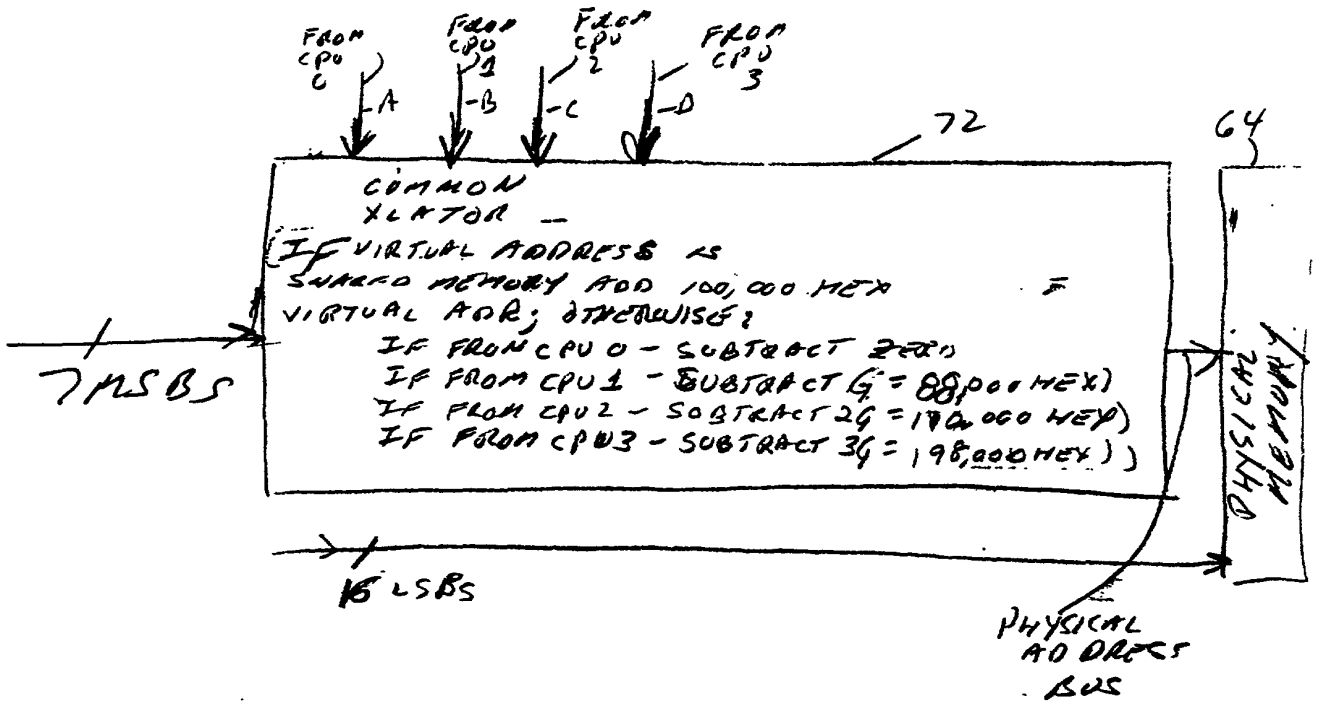 FROM
CPU
0
FROM
CPU
1
FROM
CPU
2
FROM
CPU
3
-A
-B
-C
-D
72
64
COMMON
XLATOR —
(IF VIRTUAL ADDRESS IS
SHARED MEMORY ADD 100,000 HEX =
VIRTUAL ADR; OTHERWISE:
IF FROM CPU 0 - SUBTRACT ZERO
IF FROM CPU 1 - SUBTRACT G = 88,000 HEX)
IF FROM CPU 2 - SUBTRACT 2G = 110,000 HEX)
IF FROM CPU 3 - SUBTRACT 3G = 198,000 HEX))
7 MSBS
16 LSBS
PHYSICAL
MEMORY
PHYSICAL
ADDRESS
BUS